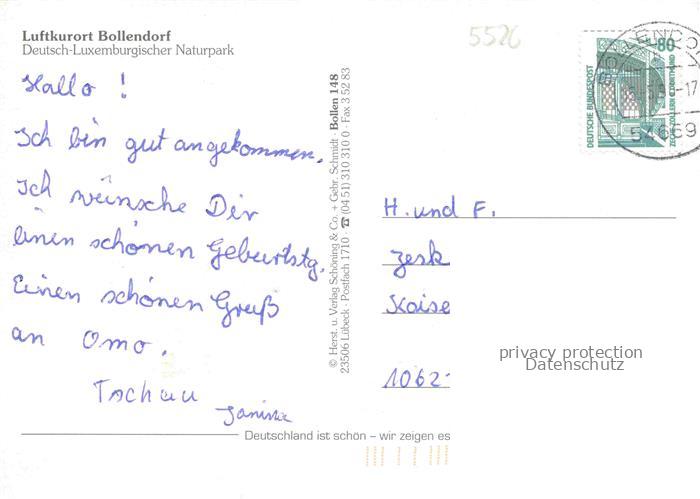 Luftkurort Bollendorf
Deutsch-Luxemburgischer Naturpark
5526
Hallo !
Ich bin gut angekommen.
Ich wünsche Dir
einen schönen Geburtstg.
Einen schönen Gruß
an Omo.
Tschau
Janina
© Herst. u. Verlag Schöning & Co. + Gebr. Schmidt · Bollen 148
23506 Lübeck · Postfach 1710 · ☎ (04 51) 310 310 0 · Fax 3 52 83
80
DEUTSCHE BUNDESPOST
ZECHE ZOLLERN II DORTMUND
-17
54669
H. und F.
Jesk
Kaise
1062-
privacy protection
Datenschutz
Deutschland ist schön – wir zeigen es